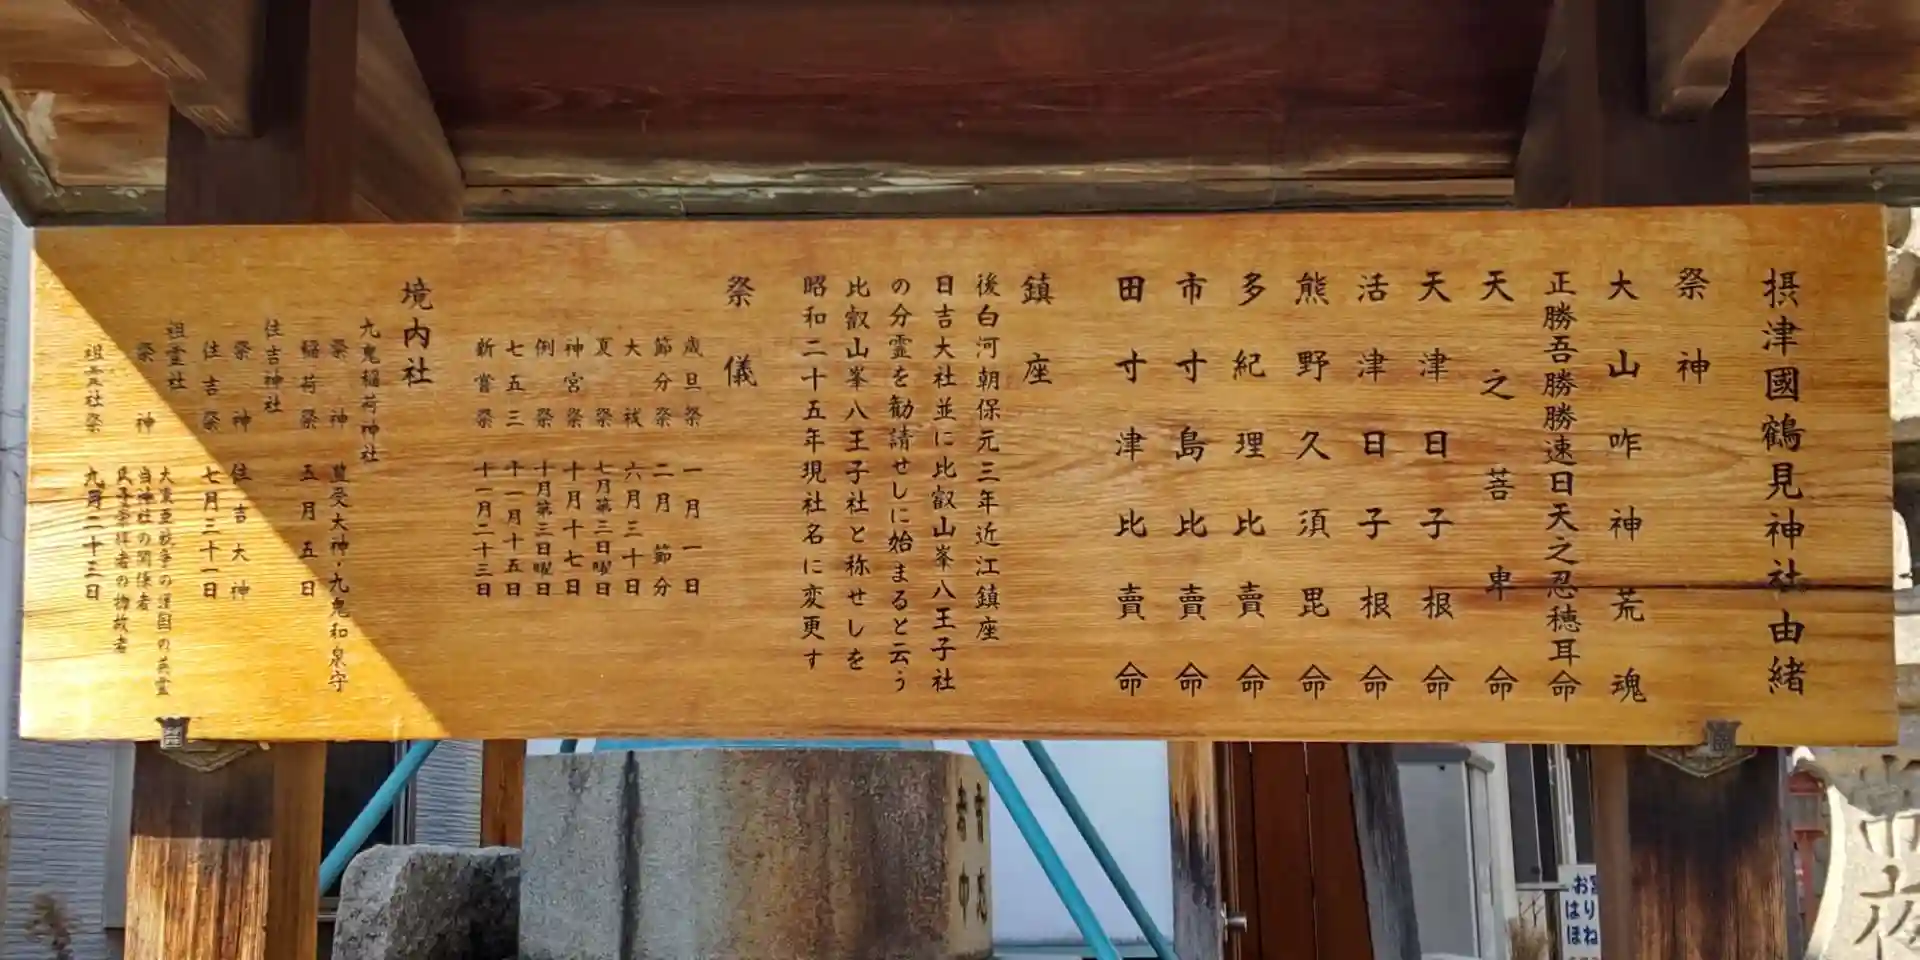 摂津國鶴見神社由緒
祭神
大山咋神荒魂
正勝吾勝勝速日天之忍穂耳命
天之菩卑命
天津日子根命
活津日子根命
熊野久須毘命
多紀理比賣命
市寸島比賣命
田寸津比賣命
鎮座
後白河朝保元三年近江鎮座
日吉大社並に比叡山峯八王子社
の分霊を勧請せしに始まると云う
比叡山峯八王子社と称せしを
昭和二十五年現社名に変更す
祭儀
歳旦祭 一月一日
節分祭 二月節分
大祓 六月三十日
夏祭 七月第三日曜日
神宮祭 十月十七日
例祭 十月第三日曜日
七五三 十一月十五日
新嘗祭 十一月二十三日
境内社
九鬼稲荷神社
祭神 豊受大神・九鬼和泉守
稲荷祭 五月五日
住吉神社
祭神 住吉大神
住吉祭 七月三十一日
祖霊社
祭神 大東亜戦争の護国の英霊
当神社の関係者
氏子崇拝者の物故者
祖霊社祭 九月二十三日